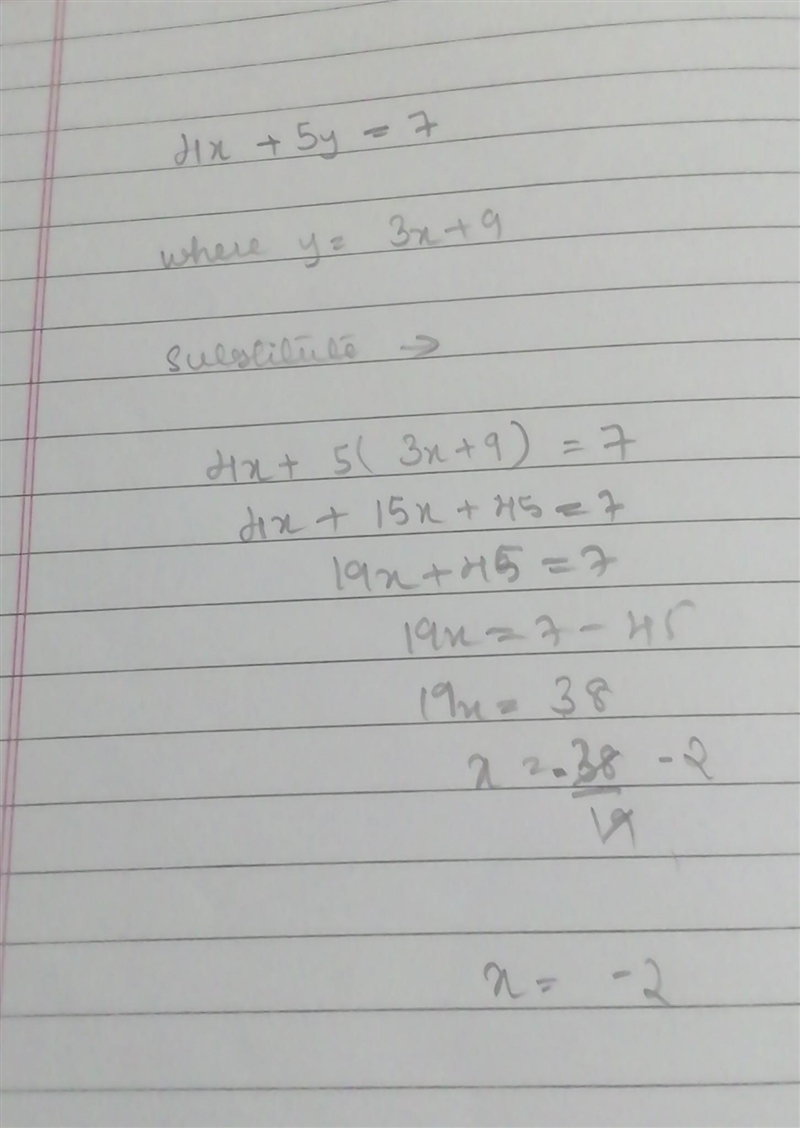 4x + 5y = 7
where y = 3x + 9
Substitute →
4x + 5( 3x + 9) = 7
4x + 15x + 45 = 7
19x + 45 = 7
19x = 7 - 45
19x = 38
x = -38 -2
19
x = -2